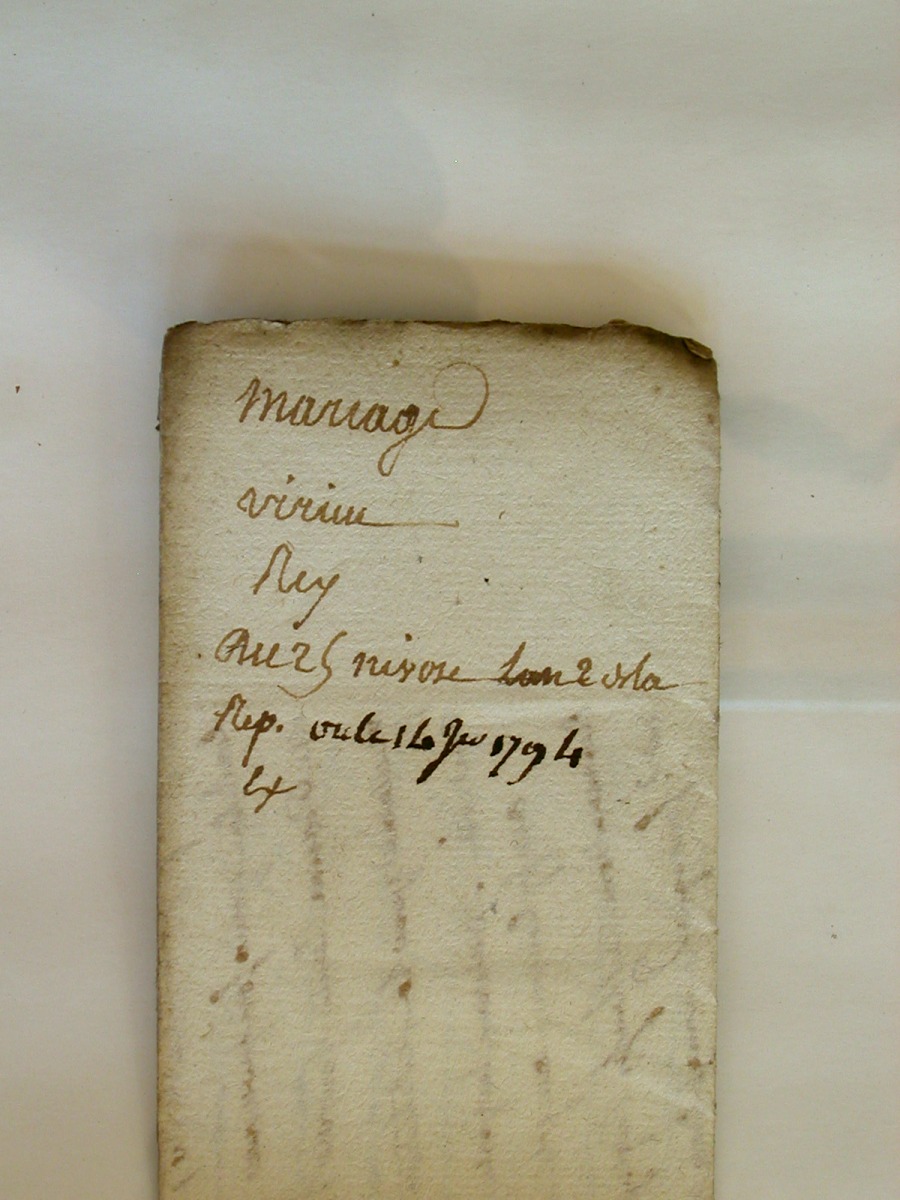 mariage
virieu
Rey
Du 25 nivose lan 2 de la
Rep. ou le 14 Jer 1794
Ex